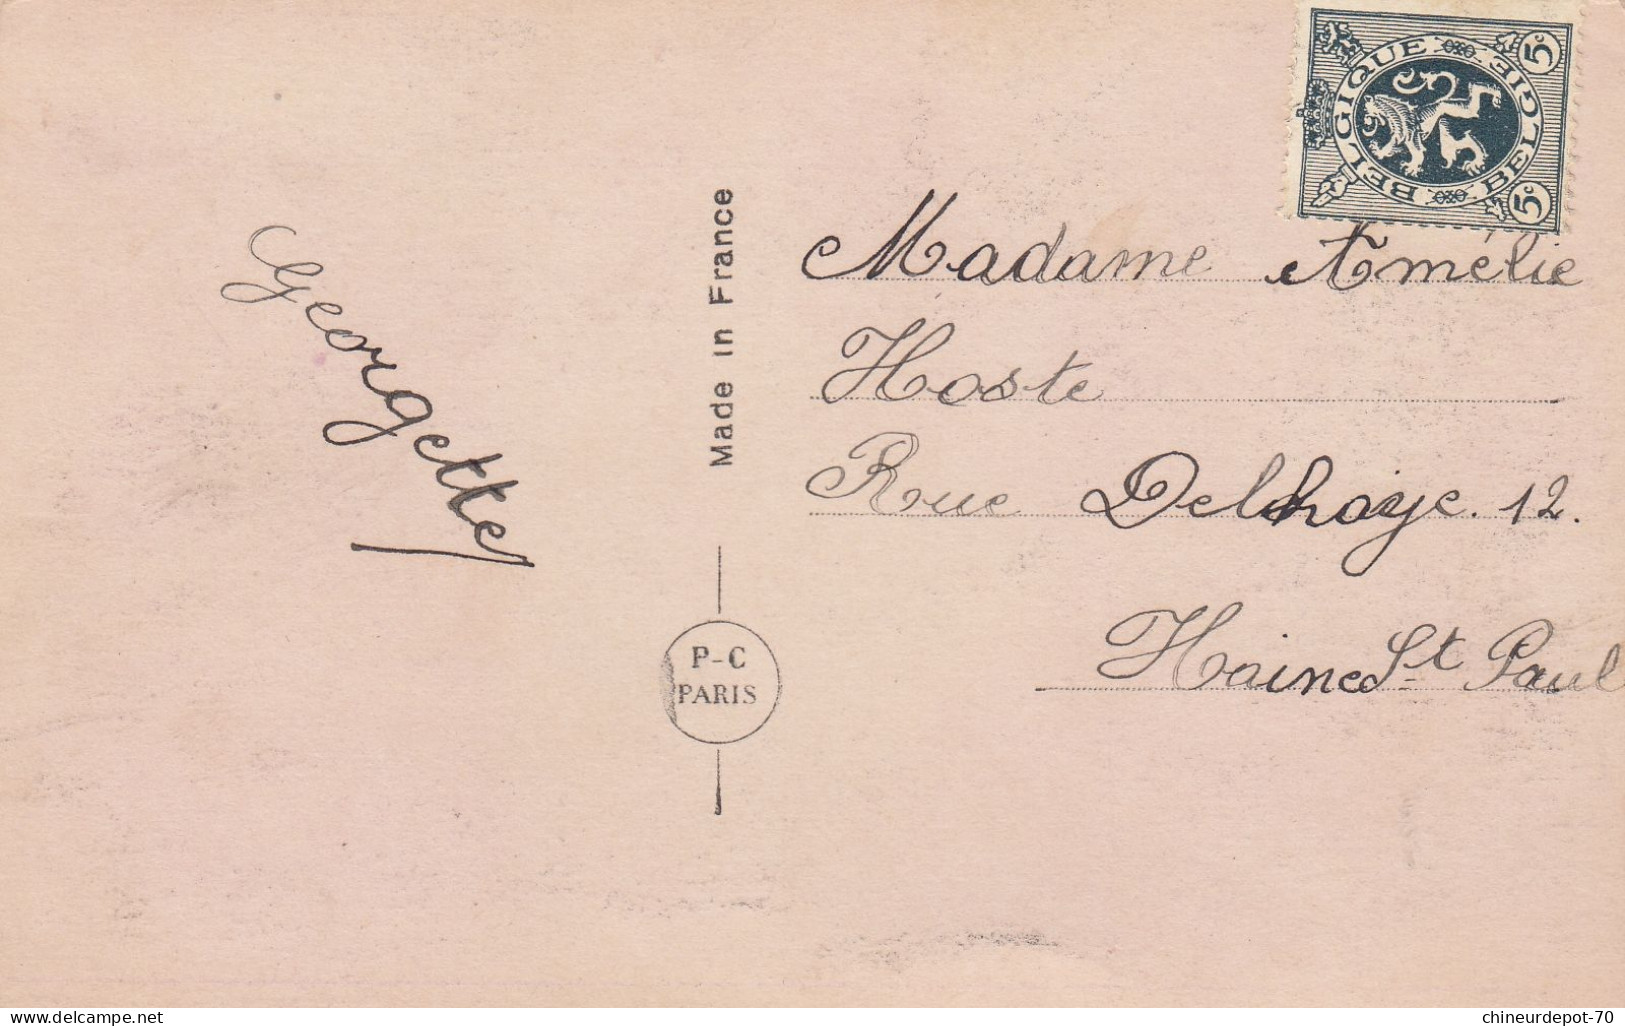 BELGIQUE BELGIE
5c
5c
Georgette
Made in France
P-C
PARIS
Madame Amélie
Hoste
Rue Delhaye. 12.
Haine St Paul
www.delcampe.net
chineurdepot-70